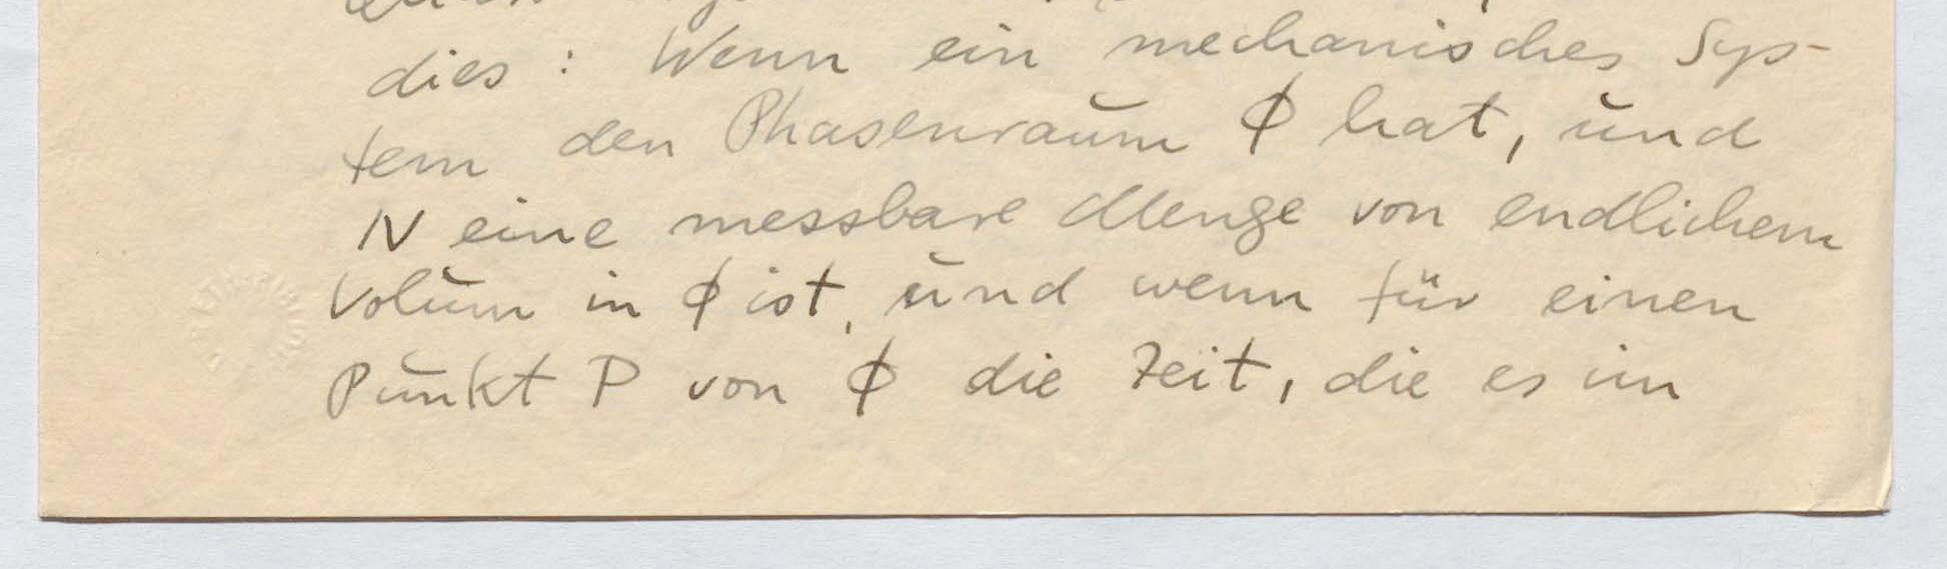 dies : Wenn ein mechanisches Sys-
tem den Phasenraum Φ hat, und
N eine messbare Menge von endlichem
Volum in Φ ist, und wenn für einen
Punkt P von Φ die Zeit, die es im